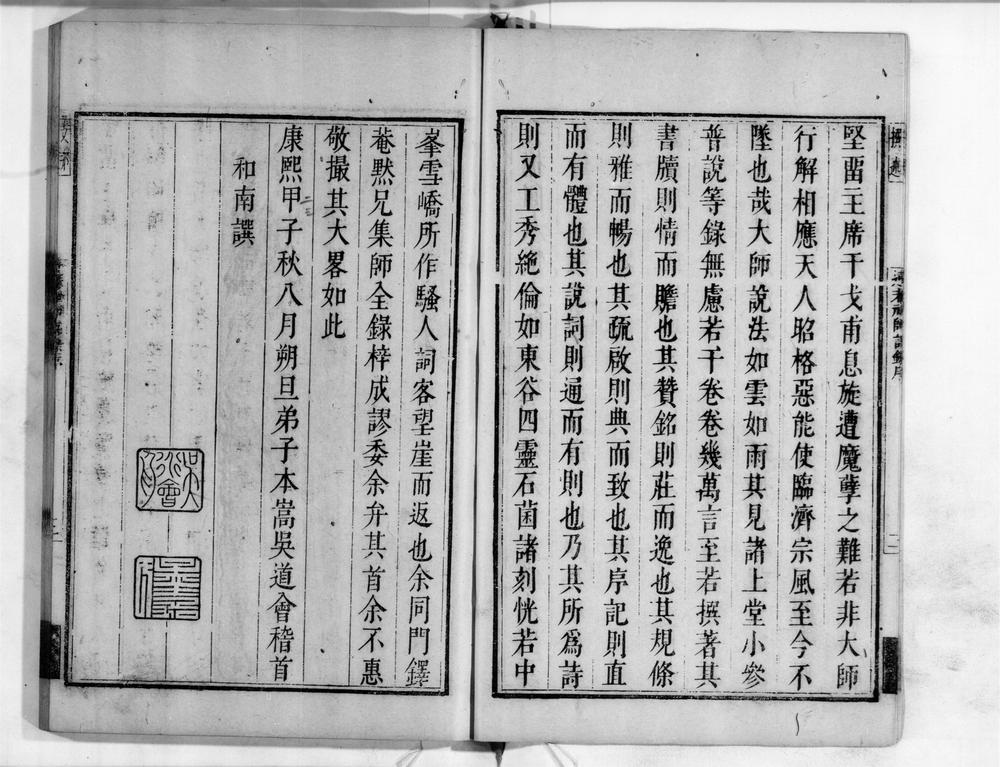 堅畱主席干戈甫息旋遭魔孽之難若非大師
行解相應天人昭格惡能使臨濟宗風至今不
墜也哉大師說法如雲如雨其見諸上堂小參
普說等錄無慮若干卷卷幾萬言至若撰著其
書牘則情而贍也其贊銘則莊而逸也其規條
則雅而暢也其疏啟則典而致也其序記則直
而有體也其說詞則通而有則也乃其所爲詩
則又工秀絶倫如東谷四靈石菌諸刻恍若中
峯雪嶠所作騷人詞客望崖而返也余同門鐸
菴默兄集師全錄梓成謬委余弁其首余不惠
敬撮其大畧如此
康熙甲子秋八月朔旦弟子本嵩吳道會稽首
和南譔